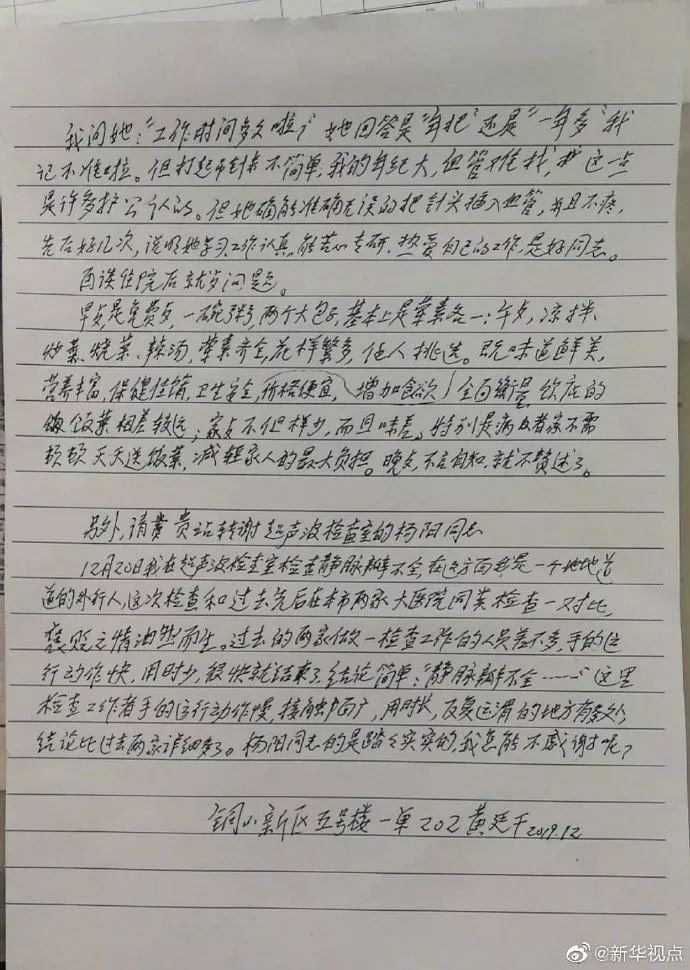 我问她:“工作时间多久啦?她回答是“年把”还是“一年多”我
记不准啦。但打起吊针来不简单,我的年纪大,血管难找,这一点
是许多护公认的。但她确能准确无误的把针头插入血管,并且不疼,
先后好几次,说明她学习工作认真。能苦心专研.热爱自己的工作,是好同志。
再谈住院后就歺问题。
早歺是免费歺,一碗粥,两个大包子,基本上是荤素各一;午歺,凉拌、
炒菜、烧菜、辣汤,荤素齐全,花样繁多,任人挑选。既味道鲜美,
营养丰富,保健佳销,卫生安全,价格便宜,增加食欲,全面衡量,饮店的
饭菜相差较远;家歺不但样少,而且味差。特别是病者家不需
顿顿天天送饭菜,减轻家人的最大负担。晚歺,不言自知,就不赘述了。
另外,请贵站转谢超声波检查室的杨阳同志
12月20日我在超声波检查室检查静脉瓣不全,在这方面我是一个地地道
道的外行人,这次检查和过去先后在本市两家大医院同类检查一对比,
褒贬之情油然而生。过去的两家做一检查工作的人员差不多,手的运
行动作快,用时少,很快就结束了,结论简单:“静脉瓣不全……”这里
检查工作者手的运行动作慢,接触面广,用时长,反复运滑的地方有多处,
结论比过去两家详细多了。杨阳同志的是踏踏实实的,我怎能不感谢呢?
铜山新区五号楼一单202 黄廷干2019.12
@新华视点